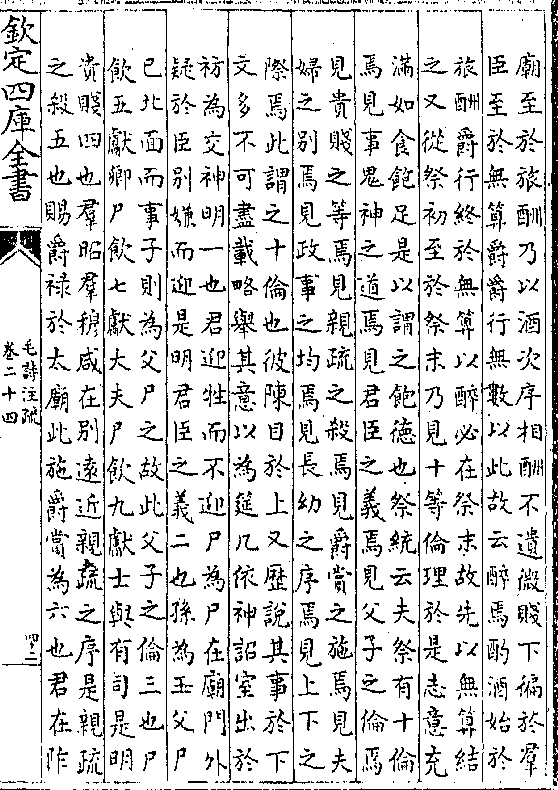 廟至於旅酬乃以酒次序相酬不遺微賤下徧於羣
臣至於無算爵爵行無數以此故云醉焉酌酒始於
旅酬爵行終於無算以醉必在祭末故先以無算結
之又從祭初至於祭末乃見十等倫理於是志意充
滿如食飽足是以謂之飽德也祭統云夫祭有十倫
焉見事鬼神之道焉見君臣之義焉見父子之倫焉
見貴賤之等焉見親疏之殺焉見爵賞之施焉見夫
婦之別焉見政事之均焉見長幼之序焉見上下之
際焉此謂之十倫也彼陳目於上又歷說其事於下
文多不可盡載略舉其意以為筵几依神詔室出於
祊為交神明一也君迎牲而不迎尸為尸在廟門外
疑於臣別嫌而迎是明君臣之義二也孫為王父尸
已北面而事子則為父尸之故此父子之倫三也尸
飲五獻卿尸飲七獻大夫尸飲九獻士與有司是明
貴賤四也羣昭羣穆咸在別遠近親疏之序是親疏
之殺五也賜爵祿於太廟此施爵賞為六也君在阼
欽定四庫全書
毛詩注疏
卷二十四